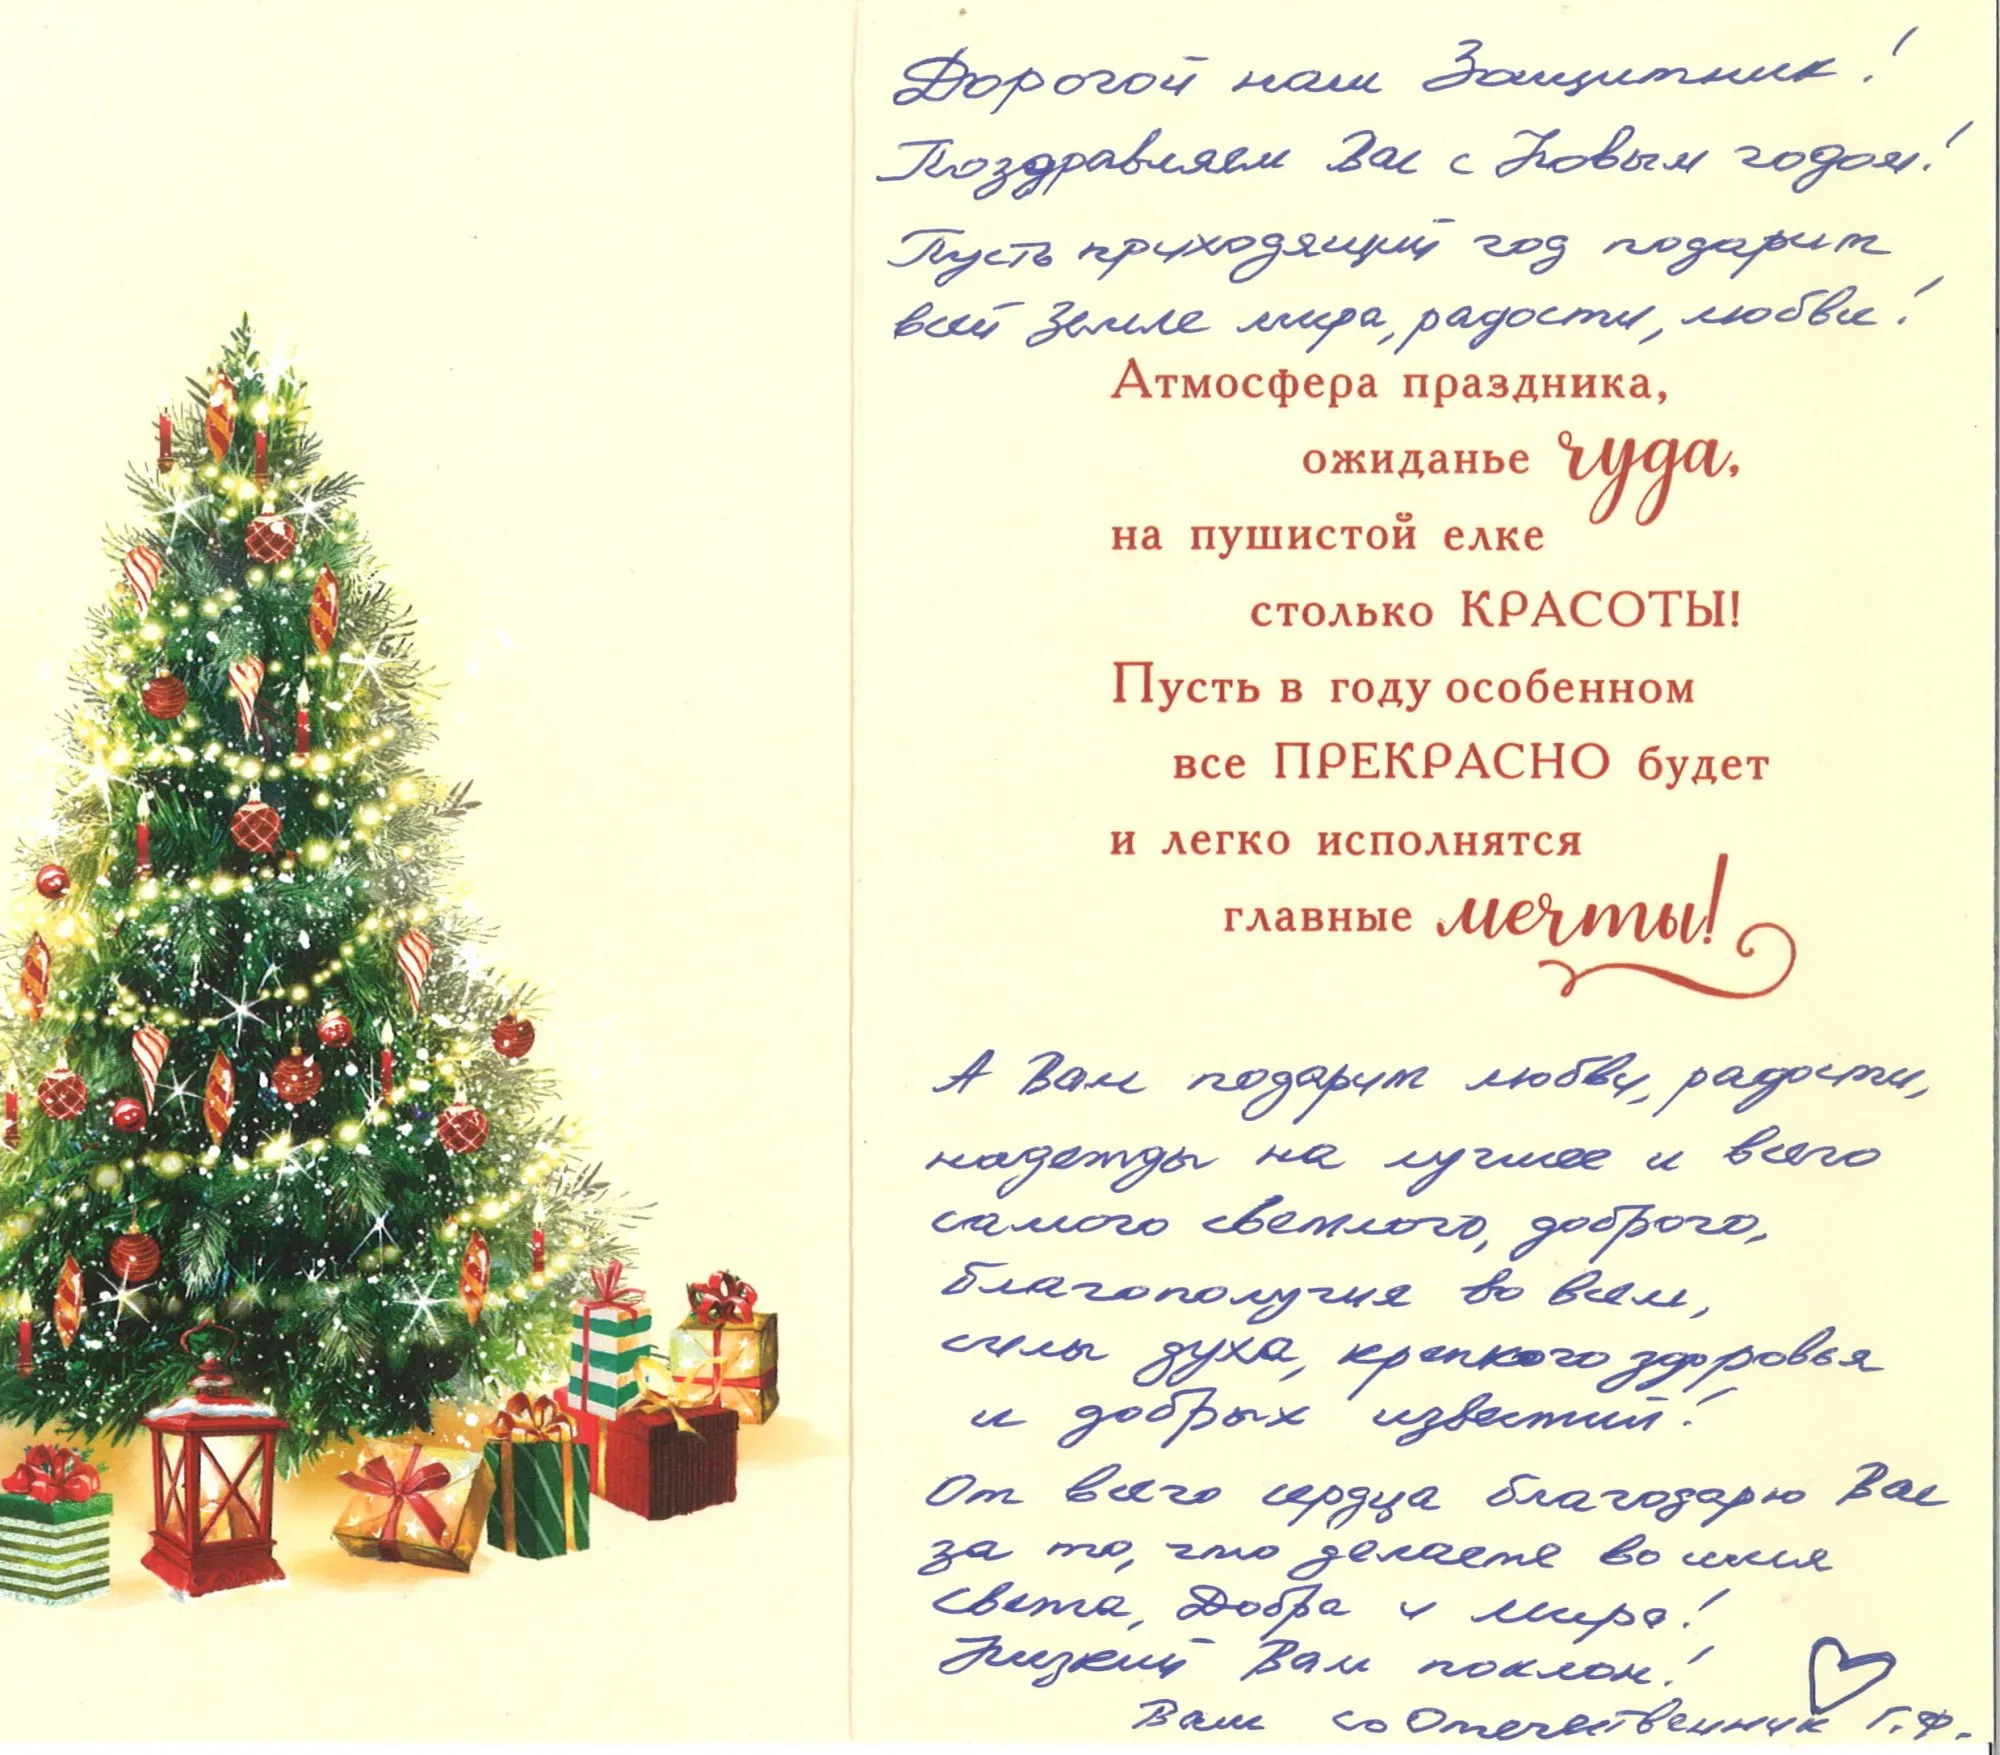 Дорогой наш Защитник!
Поздравляем Вас с Новым годом!
Пусть приходящий год подарит
всей Земле мира, радости, любви!
Атмосфера праздника,
ожиданье чуда,
на пушистой елке
столько КРАСОТЫ!
Пусть в году особенном
все ПРЕКРАСНО будет
и легко исполнятся
главные мечты!
А Вам подарит любви, радости,
надежды на лучшее и всего
самого светлого, доброго,
благополучия во всем,
силы духа, крепкого здоровья
и добрых известий!
От всего сердца благодарю Вас
за то, что делаете во имя
света, Добра и мира!
Низкий Вам поклон!
Ваш соОтечественник Г.Ф.